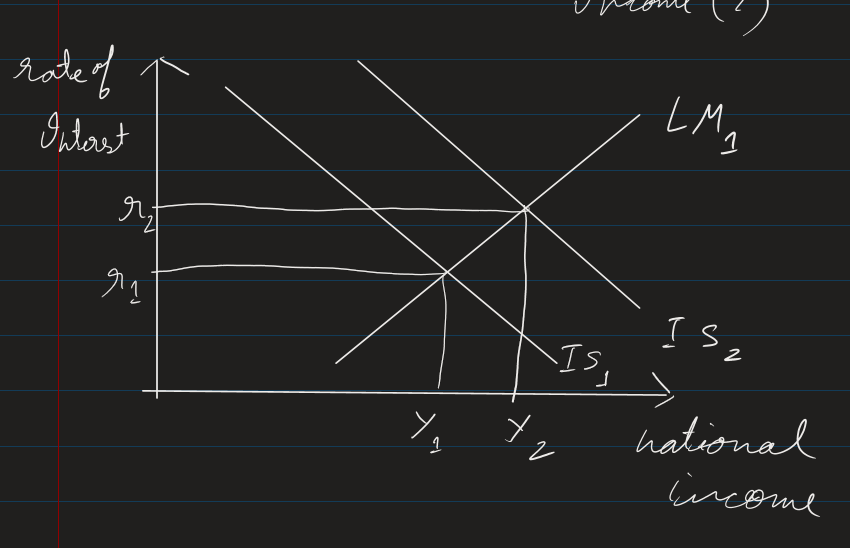 Income (Y)
rate of
Interest
LM1
r2
r1
IS2
IS1
Y1
Y2
national
income